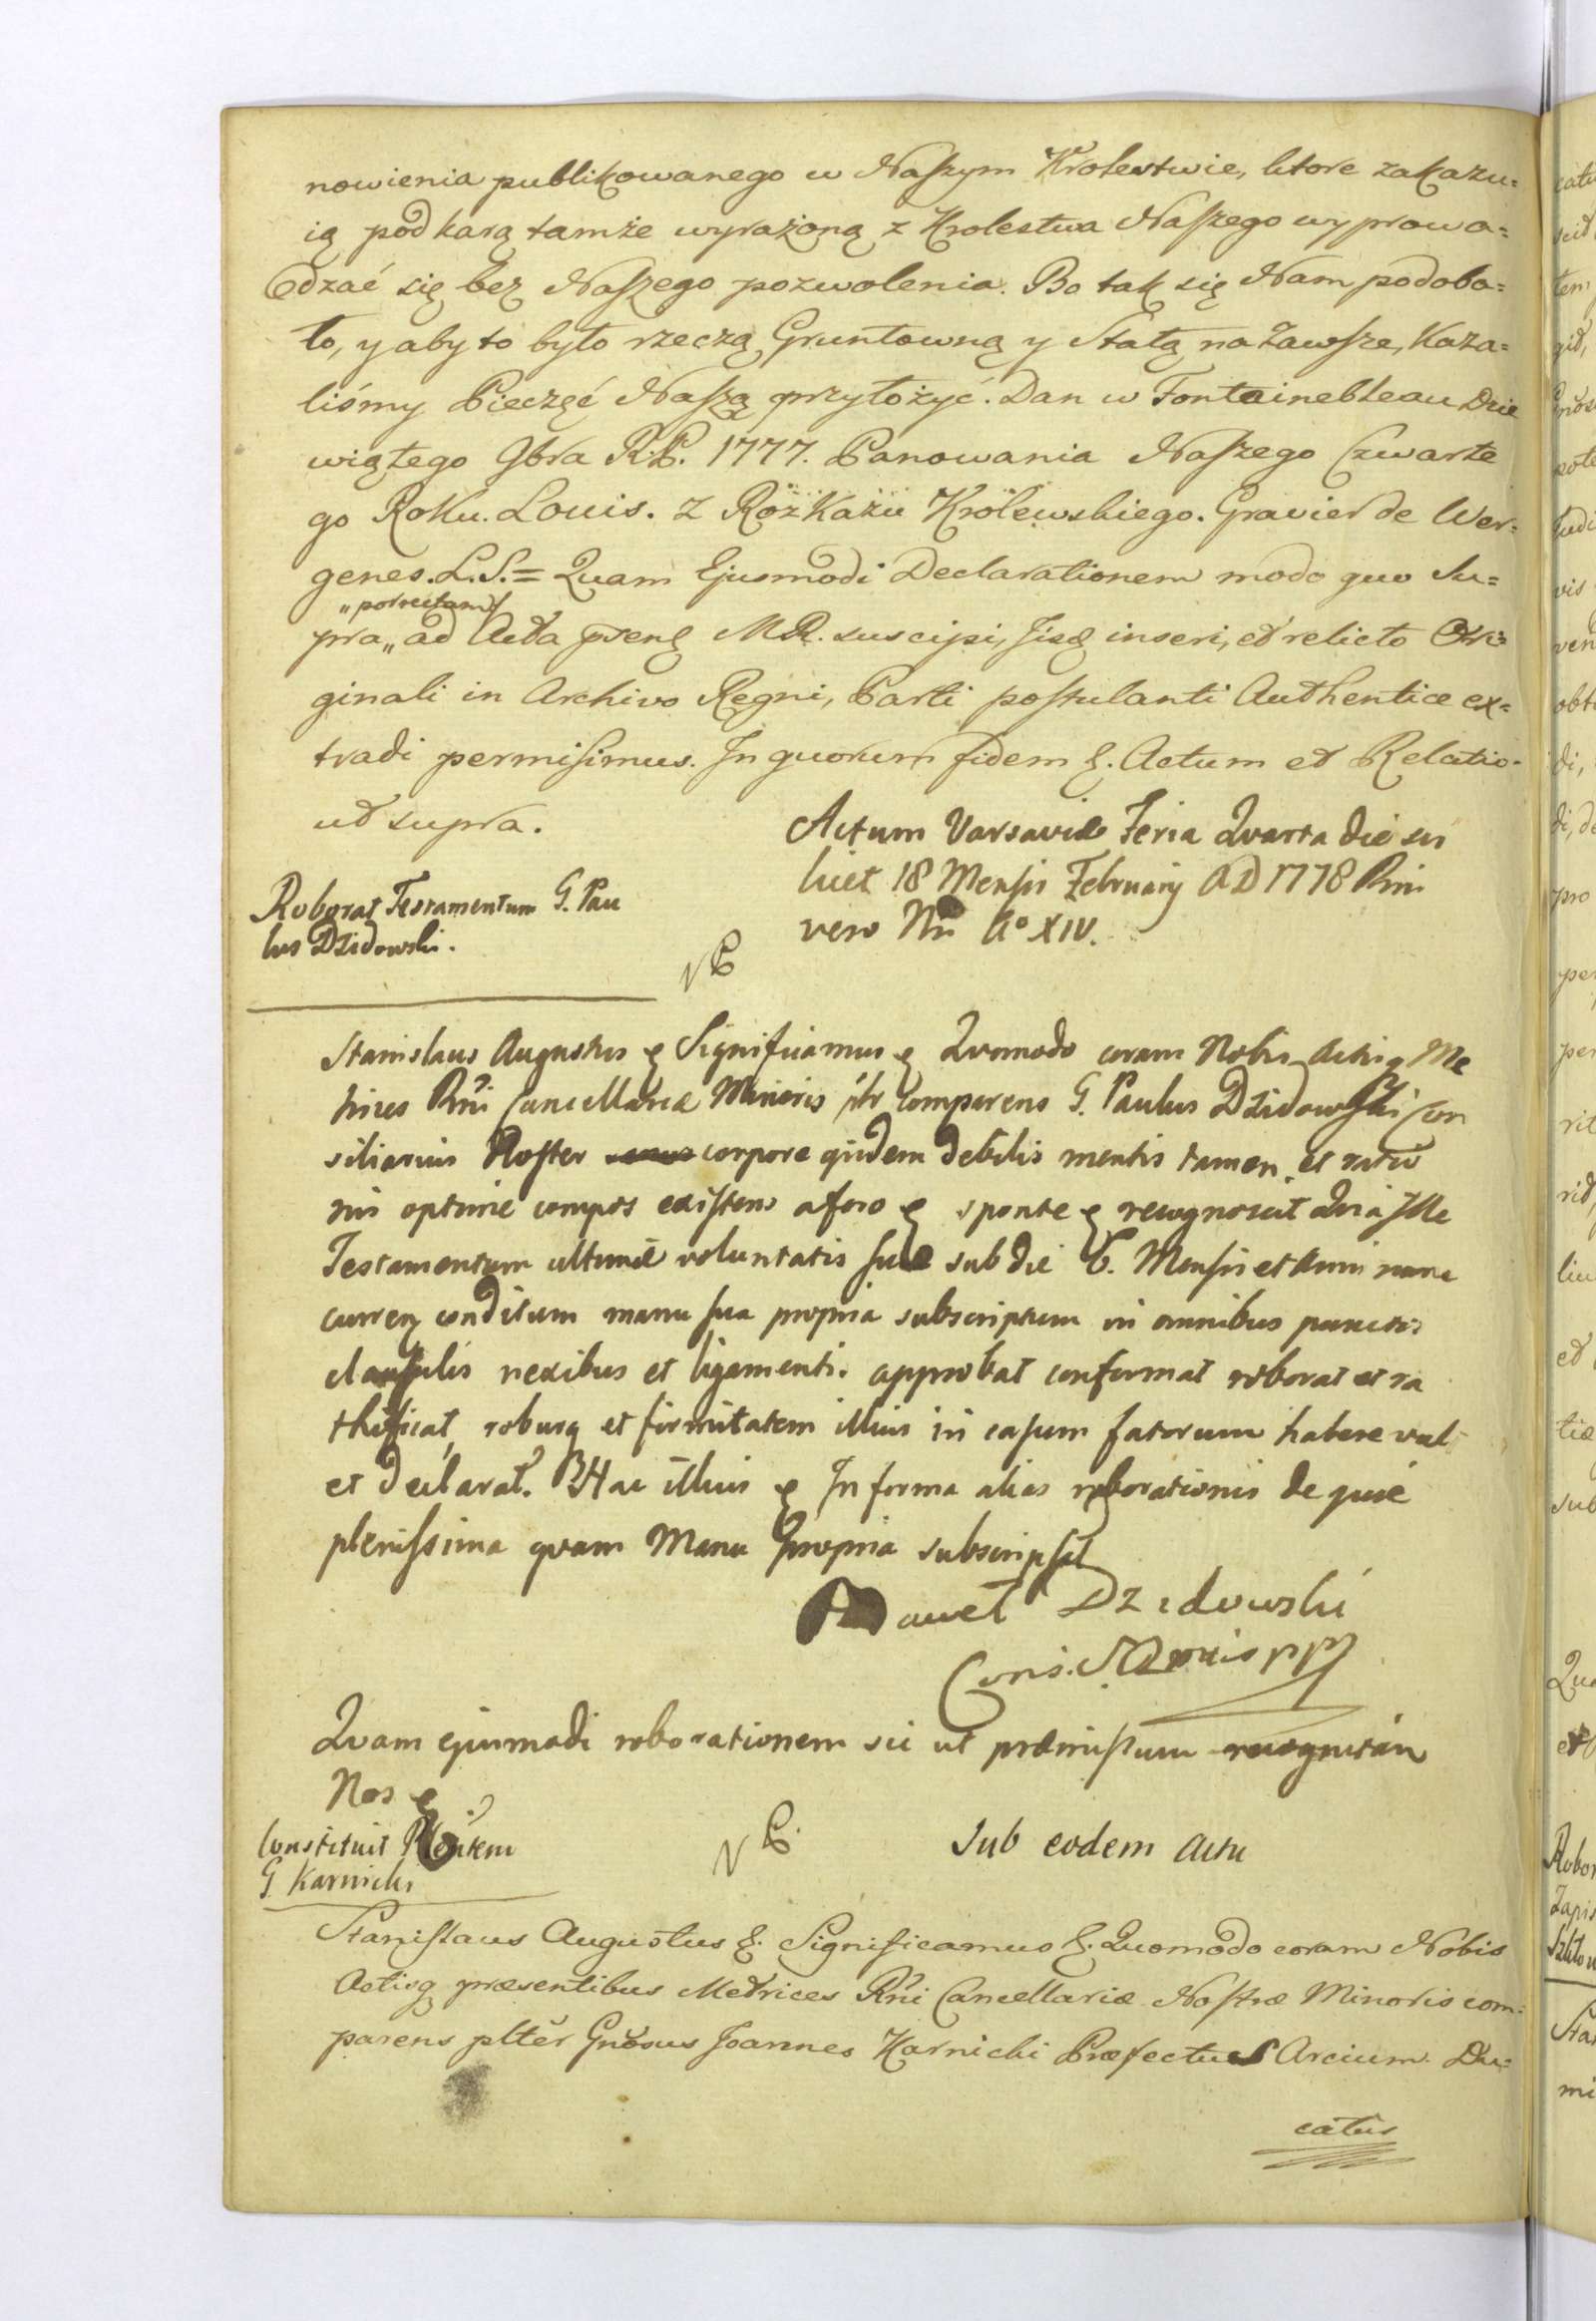 nowienia publikowanego w Naszym Krolestwie, ktore zakazu=
ią pod karą tamże wyrażoną z Krolestwa Naszego wyprowa=
dzać się bez Naszego pozwolenia. Bo tak się Nam podoba=
ło, y aby to było rzeczą Gruntowną y Stałą na zawsze, Kaza=
liśmy Pieczęć Naszą przyłożyć. Dan w Fontainebleau Dzie
wiątego 9bra R.P. 1777. Panowania Naszego Czwarte
go Roku. Louis. Z Rozkazu Królewskiego. Gravier de Wer=
genes. L.S. = Quam Ejusmodi Declarationem modo quo Su=
„porrectam
pra „ ad Acta prnẽ MR. suscipi, Jisq inseri, et relicto Ori=
ginali in Archivo Regni, Parti postulanti Authentice ex=
tradi permisimus. In quorum fidem &. Actum et Relatio
ut supra.
Actum Varsaviæ Feria Quarta die sci
licet 18 Mensis Februarij AD 1778 Rni
vero Nri Aº XIV.
Roborat Testamentum G. Pau
lus Dzidowski.
NP
Stanislaus Augustus & Significamus & Quomodo coram Nobis Actisq Me
trices Rni Cancellariæ Minoris pltr Comparens G. Paulus Dzidowski Con
siliarius Noster corpore quidem debilis mentis tamen et ratio
nis optime compos existens a foro & sponte & recognoscit Quia Ille
Testamentum ultimæ voluntatis suæ sub die 6. Mensis et Anni nunc
curren conditum manu sua propria subscriptum in omnibus punctis
clausulis nexibus et ligamentis approbat confirmat roborat et ra
thificat, roburq et firmitatem illius in casum fatorum habere vult
et declarat. Hac illius & In forma alias roborationis de quie
plenissima quam Manu propria subscripsit
Paweł Dzidowski
Cons. mpp
Quam ejusmodi roborationem sic ut præmissum recognitam
Nos &
Constituit Plentem
G. Karnicki
NP.
Sub eodem Actu
Stanislaus Augustus &. Significamus &. Quomodo coram Nobis
Actisq præsentibus Metrices Rni Cancellariæ Nostræ Minoris com=
parens plter Gnosus Joannes Karnicki Præfectus Arcium Du=
catus